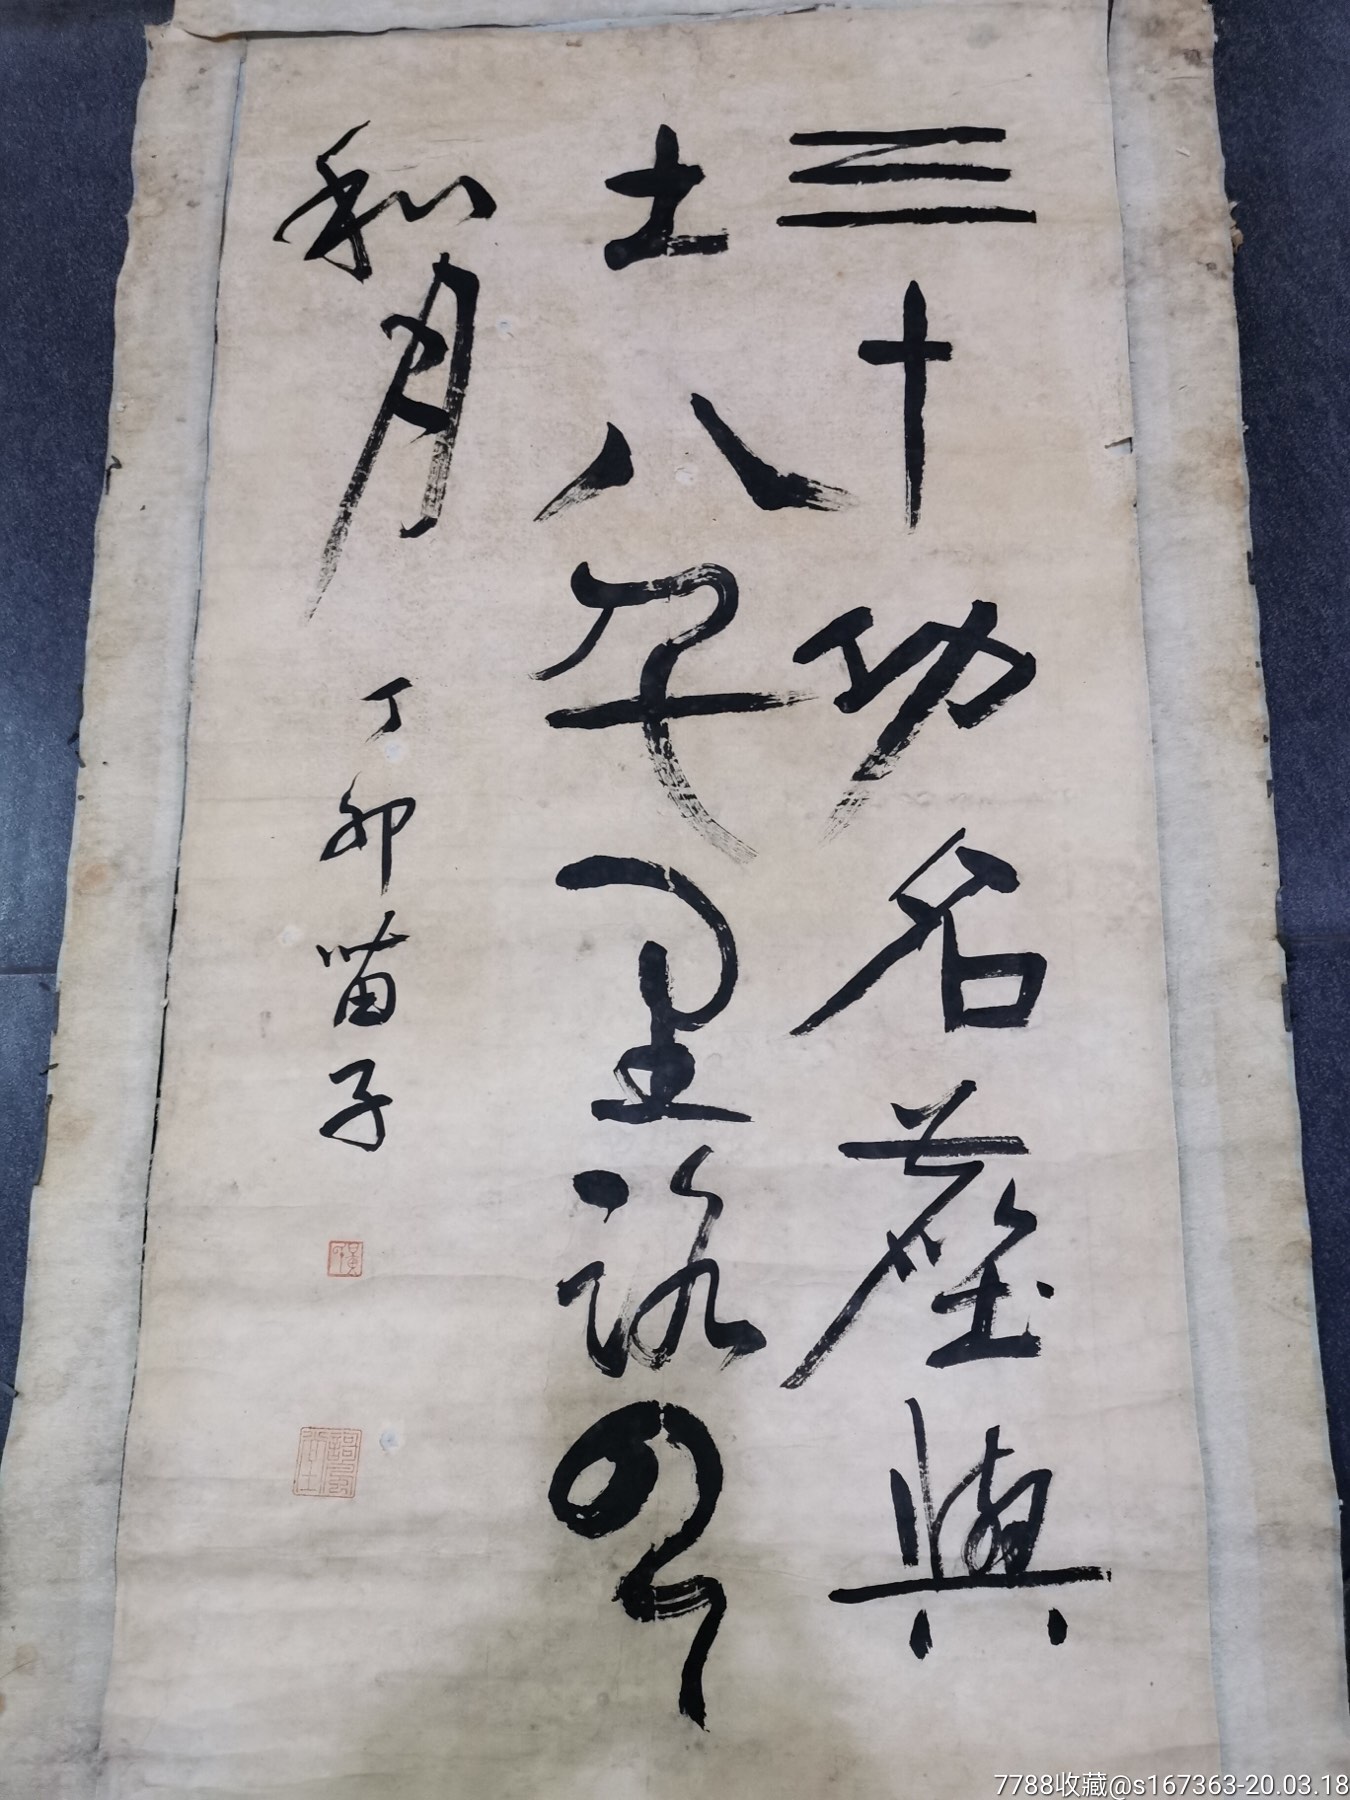 三十功名塵與
土八千里路雲
和月
丁卯苗子
7788收藏@s167363-20.03.18